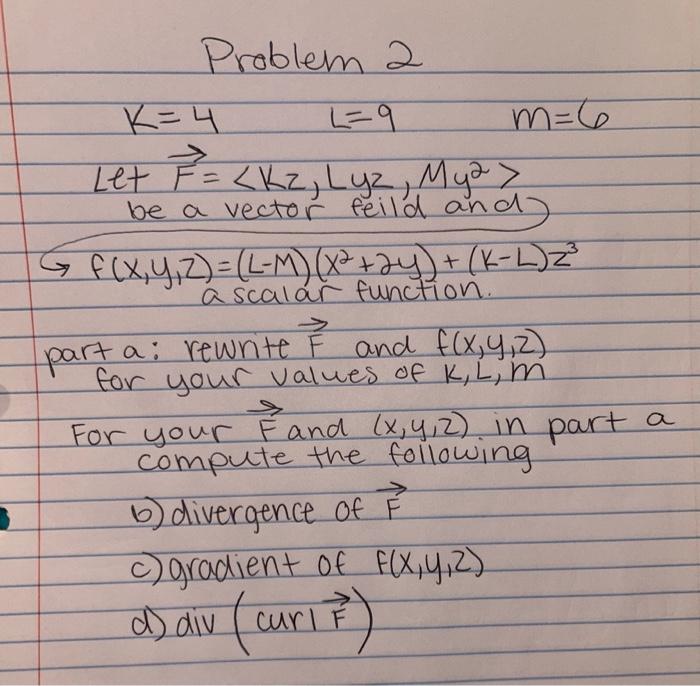 Problem 2
K=4 L=9 m=6
Let F⃗ = <Kz, Lyz, My²>
be a vector feild and
f(x,y,z)=(L-M)(x²+2y)+(K-L)z³
a scalar function.
part a: rewrite F⃗ and f(x,y,z)
for your values of K, L, m
For your F⃗ and (x,y,z) in part a
compute the following
b) divergence of F⃗
c) gradient of f(x,y,z)
d) div (curl F⃗)